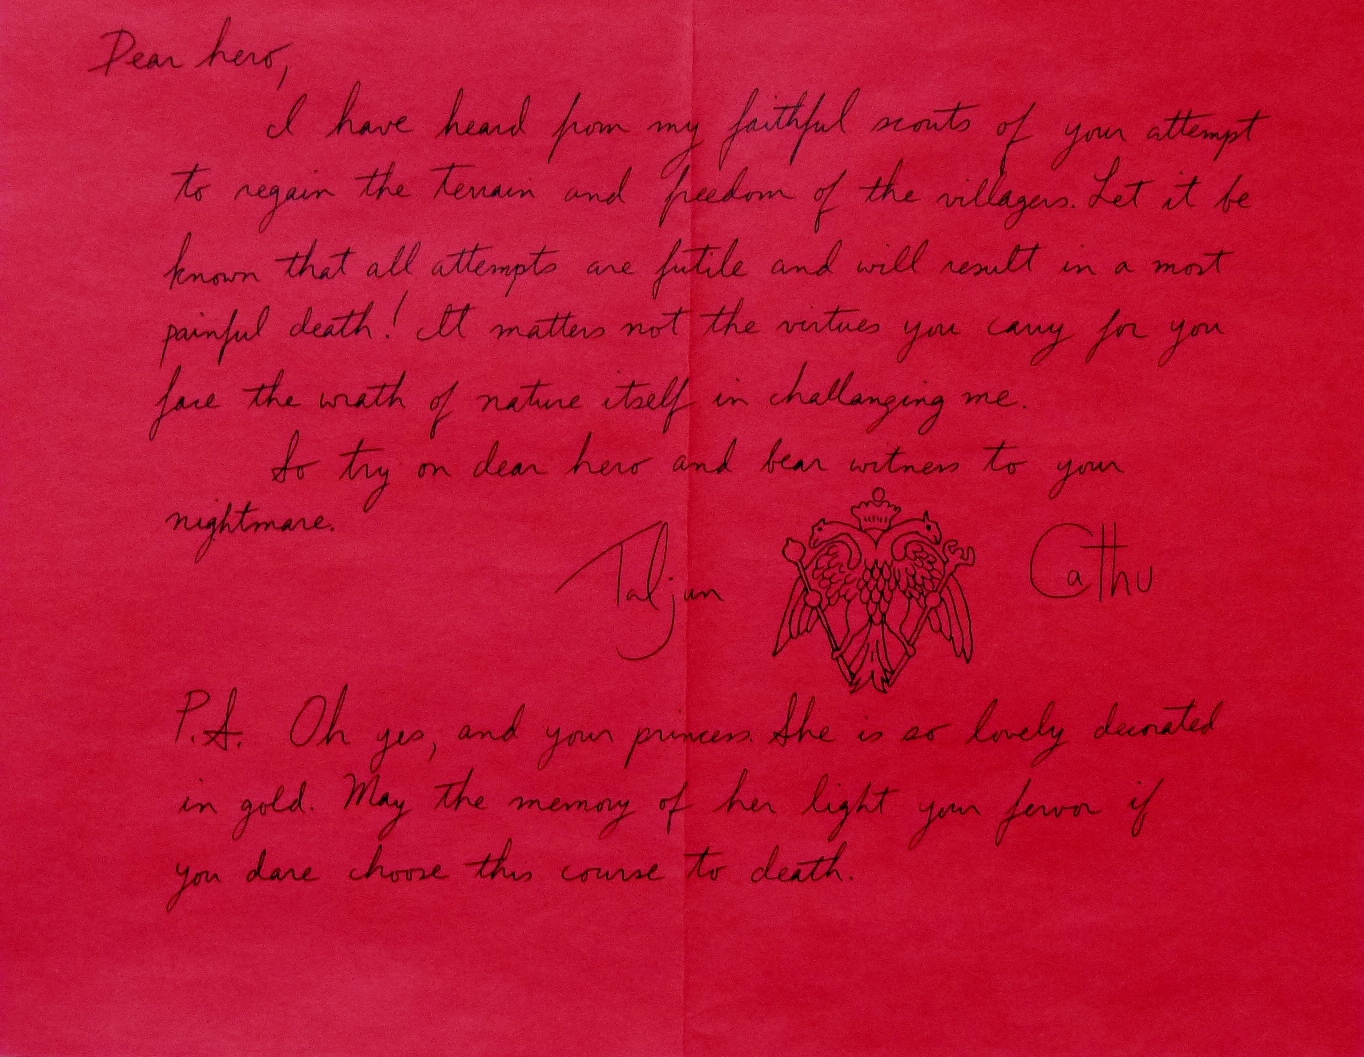 Dear hero,
I have heard from my faithful scouts of your attempt
to regain the terrain and freedom of the villagers. Let it be
known that all attempts are futile and will result in a most
painful death! It matters not the virtues you carry for you
face the wrath of nature itself in challanging me.
So try on dear hero and bear witness to your
nightmare.
Taljun Cathu
P.S. Oh yes, and your princess. She is so lovely decorated
in gold. May the memory of her light your fervor if
you dare choose this course to death.